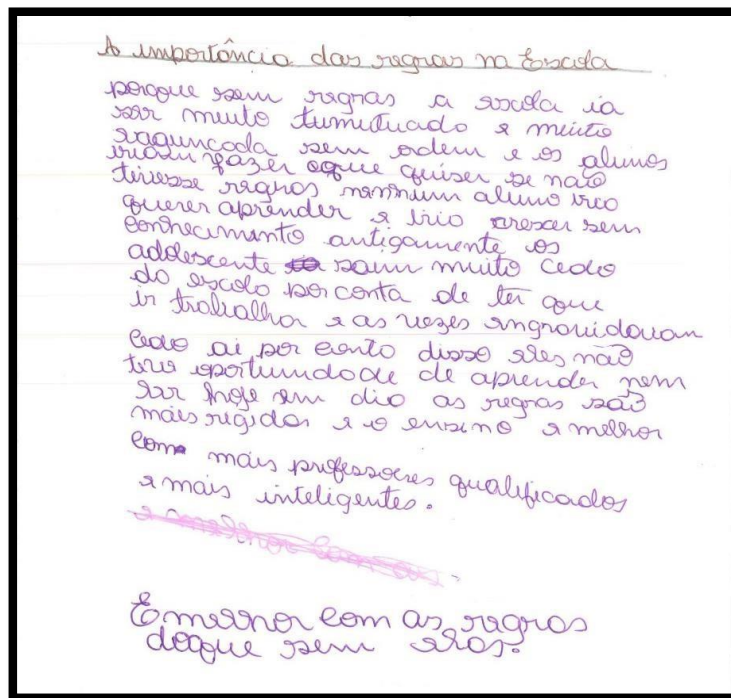 A importância das regras na Escola
porque sem regras a escola ia
ser muito tumutuado e muito
baguncada sem ordem e os alunos
iriam fazer oque quiser se não
tiviesse regras nennhum aluno irio
querer aprender e irio crescer sem
conhecimento antigamente os
adolescente saim muito cedo
do escolo por conta de ter que
ir trabalhar e as vezes engravidavam
cedo ai por conto disso eles não
tive oportunidade de aprender nem
ler hoje em dio as regras são
mais regidas e o ensino e melhor
com mais professores qualificados
e mais inteligentes.
E melhor com as regras
doque sem elas.